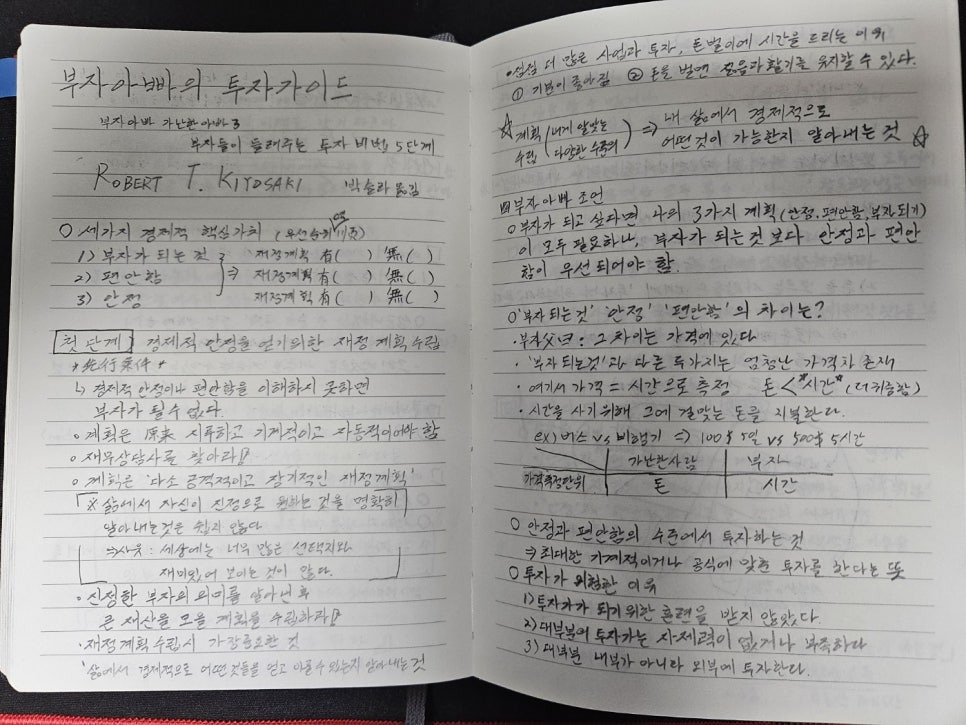 부자아빠의 투자가이드
부자아빠 가난한아빠 3
부자들이 들려주는 투자 비법 5단계
ROBERT T. KIYOSAKI 박슬라 옮김
○ 세가지 경제적 핵심가치 (우선순위
1) 부자가 되는 것 ⇒ 재정계획 有( ) 無( )
2) 편안함 재정계획 有( ) 無( )
3) 안정 재정계획 有( ) 無( )
첫 단계 경제적 안정을 얻기위한 재정 계획 수립
*先行案件*
↳ 경제적 안정이나 편안함을 이해하지 못하면
부자가 될 수 없다.
◦ 계획은 原来 지루하고 기계적이고 자동적이어야 함
◦ 재무상담사를 찾아라!
◦ 계획은 '다소 공격적이고 장기적인 재정계획'
※ 삶에서 자신이 진정으로 원하는 것을 명확히
알아내는것은 쉽지 않다
⇒이유 : 세상에는 너무 많은 선택지와
재미있어 보이는것이 많다.
• 진정한 부자의 의미를 알아낸 후
큰 재산을 모을 계획을 수립하라!
• 재정계획 수립시 가장중요한 것
'삶에서 경제적으로 어떤것들을 얻고 이룰 수 있는지 알아내는 것
• 더 많은 사업과 투자, 돈벌이에 시간을 드리는 이유
① 기분이 좋아짐 ② 돈을 벌면 젊음과 활기를 유지할 수 있다.
☆ 계획수립 (내게 알맞는 다양한 수준의) ⇒ 내 삶에서 경제적으로
어떤것이 가능한지 알아내는 것 ☆
부자아빠 조언
○ 부자가 되고 싶다면 나의 3가지 계획(안정, 편안함, 부자되기)
이 모두 필요하나, 부자가 되는것 보다 안정과 편안
함이 우선 되어야 함.
○ '부자 되는것' '안정' '편안함'의 차이는?
• 부자父曰 : 그 차이는 가격에 있다
• '부자 되는것'과 다른 두가지는 엄청난 가격차 존재
• 여기서 가격 = 시간으로 측정 돈 < *시간* (더 귀중함)
• 시간을 사기 위해 그에 걸맞는 돈을 지불한다.
ex) 버스 vs 비행기 => 100$ 5일 vs 500$ 5시간
가난한사람 부자
가격측정단위 돈 시간
○ 안정과 편안함의 수준에서 투자하는 것
⇒ 최대한 기계적이거나 공식에 맞춘 투자를 한다는 뜻
○ 투자가 위험한 이유
1) 투자가가 되기위한 훈련을 받지 않았다
2) 대부분에 투자가는 자제력이 없거나 부족하다
3) 대부분 내부가 아니라 외부에 투자한다.